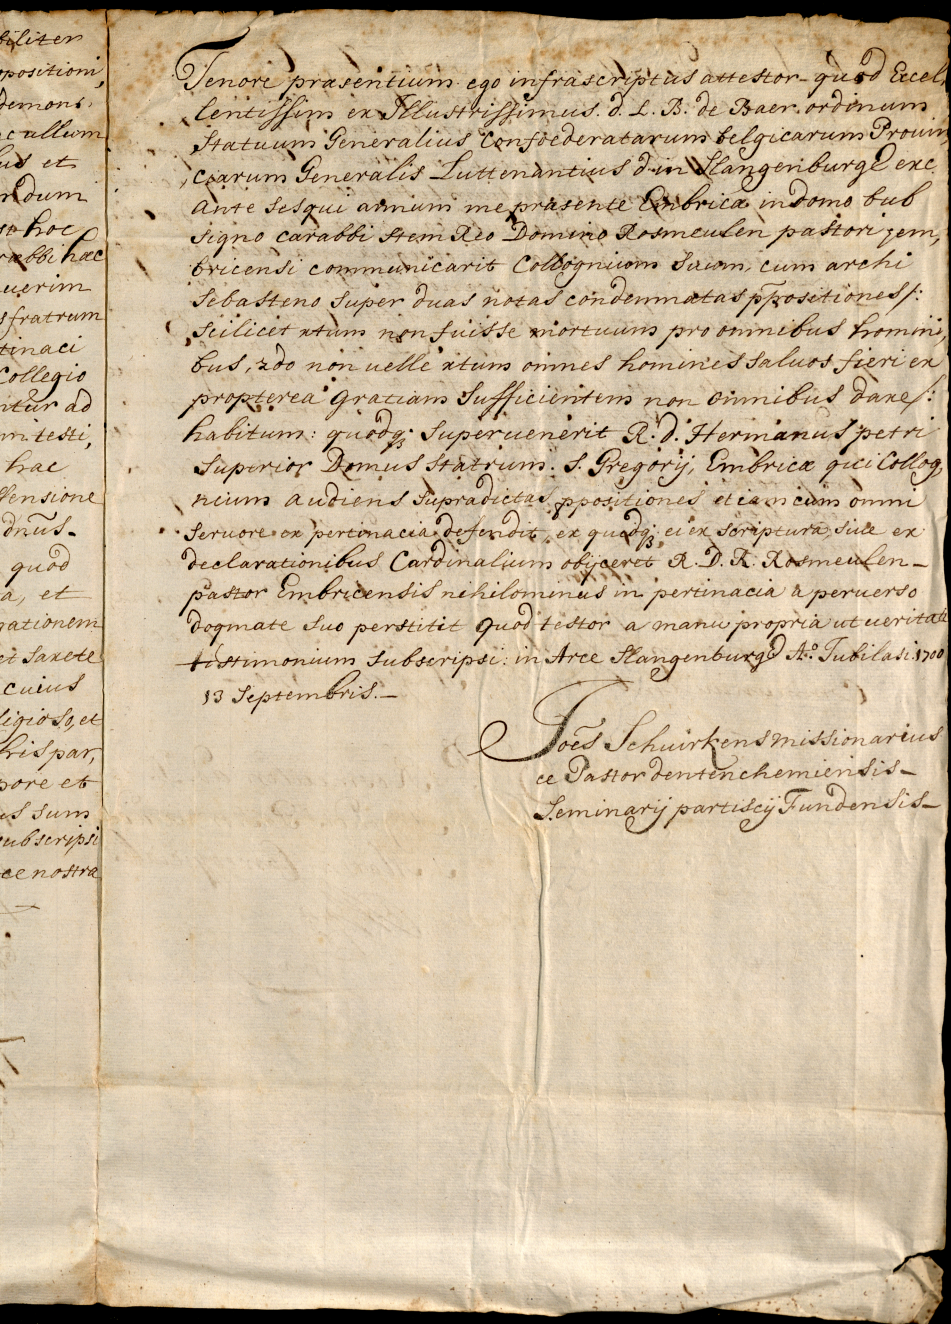 biliter
positioni,
demons,
c ullum
us et
ndum
hoc
rabbi hæc
uerim
s fratrum
tinaci
Collegio
ntur ad
m testi,
hac
Vensione
dnūs-
quod
a, et
gationem
et Sancte
cuius
ligioso, et
his par,
pore et
us sum
subscripsi
ce nostra
Tenore præsentium ego infrascriptus attestor quod Excel,
lentissim et Illustrissimus d. L. B. de Baer ordinum
Statuum Generalius Confoederatarum belgicarum Provin,
ciarum Generalis Luttenantius d: in Slangenburgh etc
Ante sesqui annum me præsente Embricæ in domo sub
signo carabbi stem Rdo Domino Rosmeulen pastori zem,
bricensi communicarit Collognium suum, cum archi
Sebasteno super duas notas condemnatas ppositiones /:
scilicet xtum non fuisse mortuum pro omnibus homini,
bus, 2do non uelle xtum omnes homines saluos fieri et
propterea gratiam sufficientem non omnibus dare /:
habitum: quodq; superuenerit R. d. Hermanus petri
superior Domus statrium. S. Gregorij, Embricæ qui Collog
nium audiens supradictas ppositiones etiam cum omni
feruore et pertinacia defendit, et quodq; ei ex scriptura siue ex
declarationibus Cardinalium obijceret R. D. R. Rosmeulen-
pastor Embricensis nihilominus in pertinacia a peruerso
dogmate suo perstitit Quod testor a manu propria ut ueritate
testimonium subscripsi: in Arce Slangenburgh Ao. Jubilæi 1700
13 Septembris.-
Joēs Schuirkens missionarius
ce Pastor dentenchemiensis-
Seminarij partiscij Fundensis-